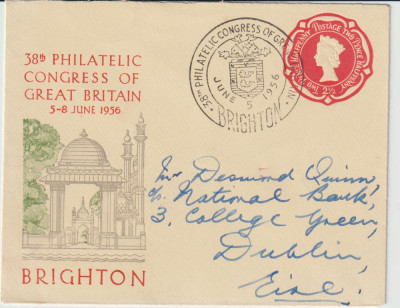 38th PHILATELIC
CONGRESS OF
GREAT BRITAIN
5-8 JUNE 1956
BRIGHTON
38TH PHILATELIC CONGRESS OF
JUNE 5 1956
BRIGHTON
POSTAGE TWO PENCE HALFPENNY
2½
Mr Desmond Quinn,
c/o National Bank,
3, College Green,
Dublin,
Eire.